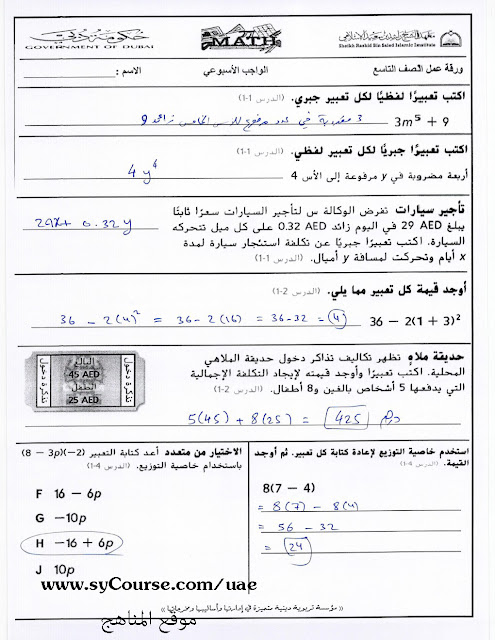 حكومة دبي
GOVERNMENT OF DUBAI
MATH
Sheikh Rashid Bin Saeed Islamic Institute
ورقة عمل الصف التاسع
الواجب الأسبوعي
الاسم :
اكتب تعبيرًا لفظيًا لكل تعبير جبري. (الدرس 1-1)
3m⁵ + 9
3 مضروبة في عدد مرفوع للاس الخامس زائد 9
اكتب تعبيرًا جبريًا لكل تعبير لفظي. (الدرس 1-1)
أربعة مضروبة في y مرفوعة إلى الأس 4
4 y⁴
تأجير سيارات تفرض الوكالة س لتأجير السيارات سعرًا ثابتًا
يبلغ 29 AED في اليوم زائد 0.32 AED على كل ميل تتحركه
السيارة. اكتب تعبيرًا جبريًا عن تكلفة استئجار سيارة لمدة
x أيام وتحركت لمسافة y أميال. (الدرس 1-1)
29x + 0.32 y
أوجد قيمة كل تعبير مما يلي. (الدرس 2-1)
36 − 2(1 + 3)²
36 − 2(4)² = 36 − 2(16) = 36 − 32 = 4
حديقة ملاهٍ تظهر تكاليف تذاكر دخول حديقة الملاهي
المحلية. اكتب تعبيرًا وأوجد قيمته لإيجاد التكلفة الإجمالية
التي يدفعها 5 أشخاص بالغين و8 أطفال. (الدرس 2-1)
تذكرة دخول
البالغ
45 AED
الطفل
25 AED
تذكرة دخول
5(45) + 8(25) = 425 درهم
استخدم خاصية التوزيع لإعادة كتابة كل تعبير. ثم أوجد
القيمة. (الدرس 4-1)
8(7 − 4)
= 8(7) − 8(4)
= 56 − 32
= 24
الاختيار من متعدد أعد كتابة التعبير (8 − 3p)(−2)
باستخدام خاصية التوزيع. (الدرس 4-1)
F 16 − 6p
G −10p
H −16 + 6p
J 10p
www.syCourse.com/uae
« مؤسسة تربوية دينية متميزة في إدارتها وأساليبها ومخرجاتها »
موقع المناهج